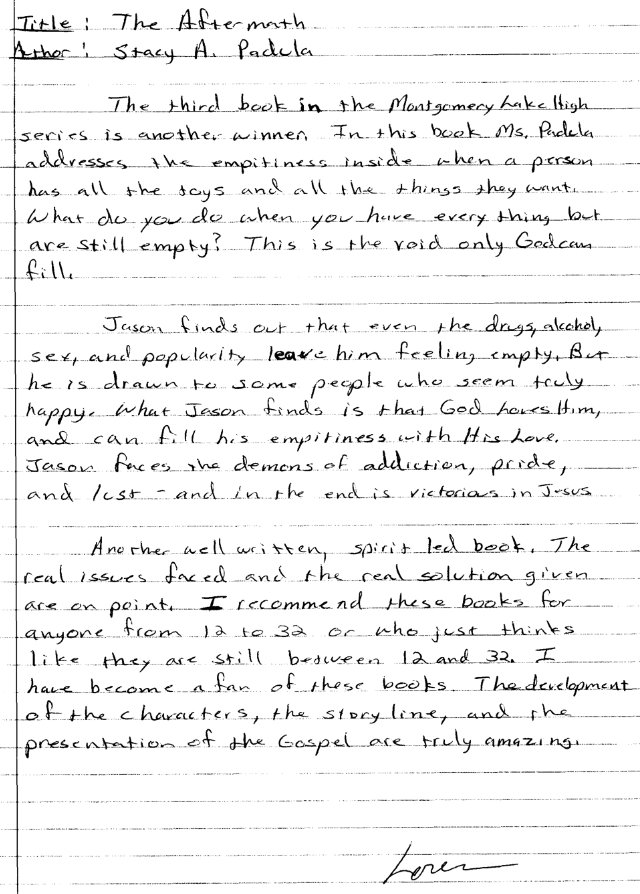 Title: The Aftermath
Author: Stacy A. Padula
The third book in the Montgomery Lake High
series is another winner. In this book Ms. Padula
addresses the empitiness inside when a person
has all the toys and all the things they want.
What do you do when you have every thing but
are still empty? This is the void only God can
fill.
Jason finds out that even the drugs, alcohol,
sex, and popularity leave him feeling empty. But
he is drawn to some people who seem truly
happy. What Jason finds is that God Loves Him,
and can fill his empitiness with His Love.
Jason faces the demons of addiction, pride,
and lust - and in the end is victorias in Jesus
Another well written, spirit led book. The
real issues faced and the real solution given
are on point. I recommend these books for
anyone from 12 to 32 or who just thinks
like they are still between 12 and 32. I
have become a fan of these books. The development
of the characters, the story line, and the
presentation of the Gospel are truly amazing.
Loren